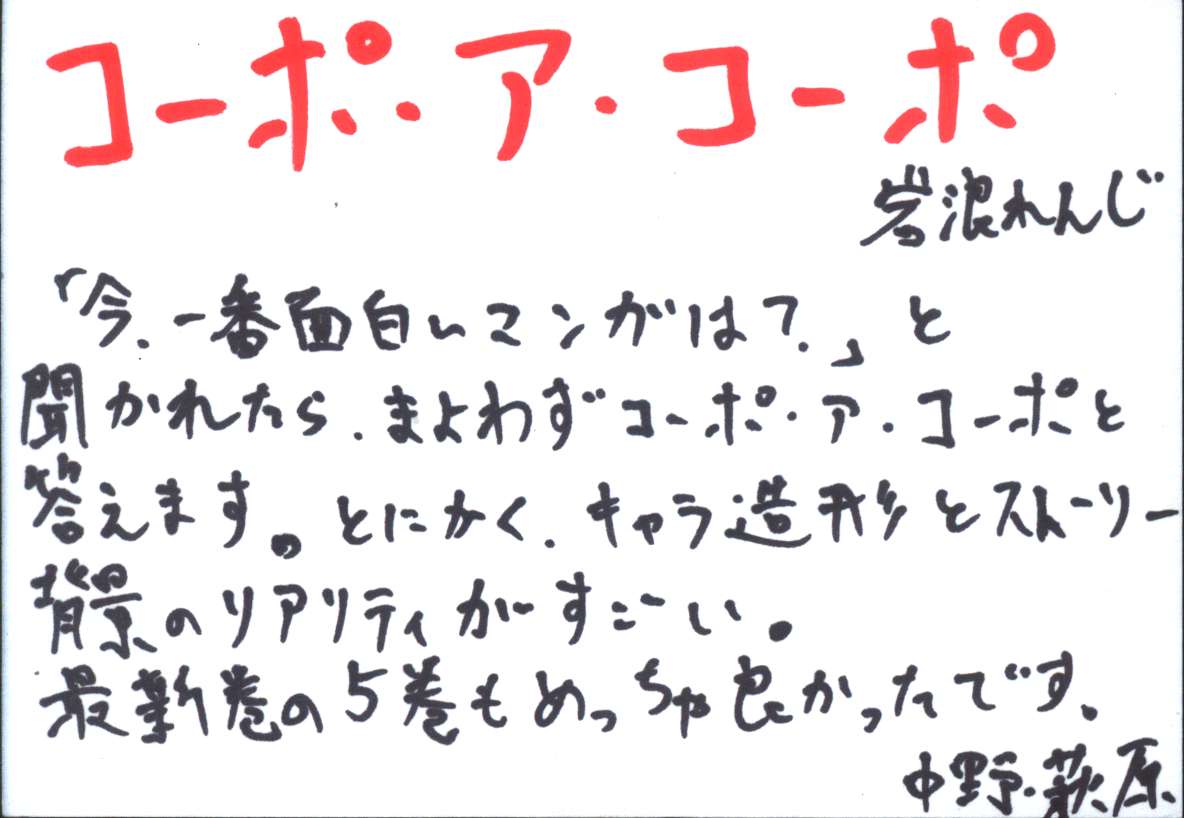 コーポ・ア・コーポ
岩浪れんじ
「今、一番面白いマンガは？」と
聞かれたら、まよわずコーポ・ア・コーポと
答えます。とにかく、キャラ造形とストーリー
背景のリアリティがすごーい。
最新巻の5巻もめっちゃ良かったです。
中野・萩原